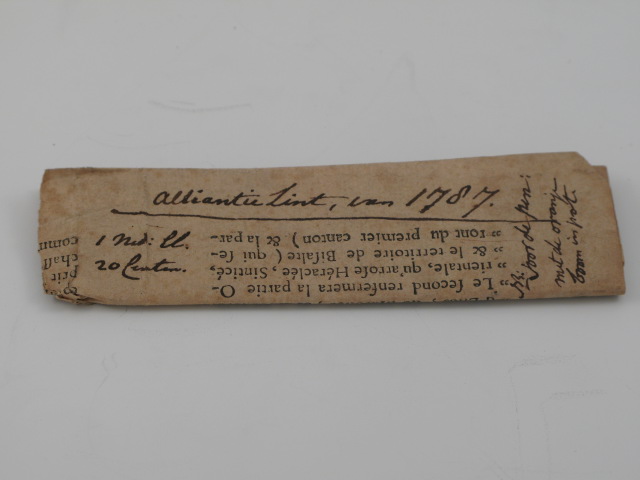 Alliantie Lint, van 1787.
1 Ned: El.
20 Centen.
„ Le ſecond renfermera la partie O-
„ rientale, qu'arroſe Héraclée, Sintice,
„ & le territoire de Biſalte ( qui ſe-
„ ront du premier canton ) & la par-
comm
chaſſ
Prit
N:
voor de pen:
met de oranje